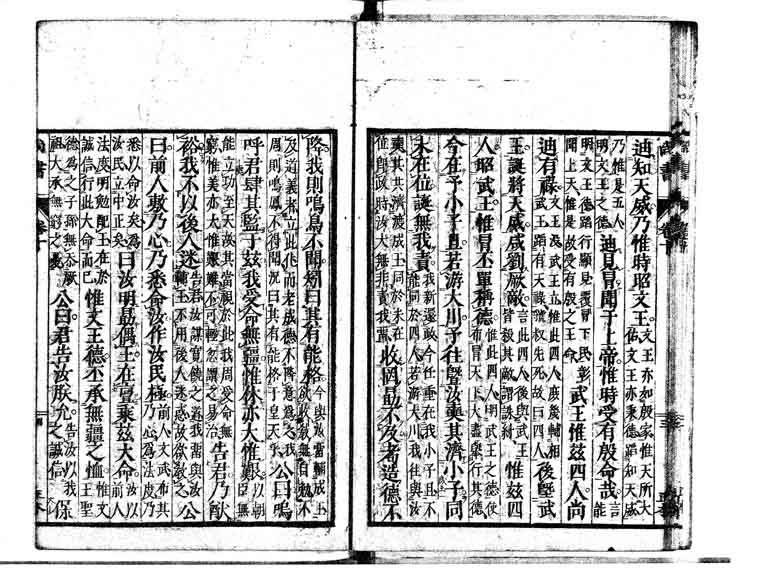 迪知天威乃惟時昭文王文王亦如殷家惟天所大佑文王亦秉德蹈知天威
乃惟是五人明文王之德迪見冒聞于上帝惟時受有殷命哉言能
明文王德蹈行顯見覆冒下民彰聞上天惟是故受有殷之王命武王惟茲四人尚
迪有祿文王沒武王立惟此四人庶幾輔相武王蹈有天祿虢叔先死故曰四人後曁武
王誕將天威咸劉厥敵言此四人後與武王皆殺其敵謂誅紂惟茲四
人昭武王惟冒丕單稱德惟此四人明武王之德使布冒天下大盡舉行其德
今在予小子旦若游大川予往曁汝奭其濟小子同
未在位誕無我責我新還政今任重在我小子旦不能同於四人若游大川我往與汝
奭其共濟渡成王同於未在位即政時汝大無非責我留收罔勗不及耉造德不
降我則鳴鳥不聞矧曰其有能格今與汝留輔成王欲收敎無自勉不
及道義者立此化而老成德不降意爲之我周則鳴鳳不得聞況曰其有能格于皇天乎公曰嗚
呼君肆其監于茲我受命無疆惟休亦大惟艱以朝臣無
能立功至天故其當視於此我周受命無窮惟美亦大惟艱難不可輕忽謂之易治告君乃猷
裕我不以後人迷告君汝謀寛饒之道我留與汝輔王不用後人迷惑故欲敎之公
曰前人敷乃心乃悉命汝作汝民極前人文武布其乃心爲法度乃
悉以命汝矣爲汝民立中正矣曰汝明勗偶王在亶乘茲大命汝以前人
法度明勉配王在於誠信行此大命而已惟文王德丕承無疆之恤惟文王聖
德爲之子孫無忝厥祖大承無窮之憂公曰君告汝朕允告汝以我之誠信保
尚書 卷十